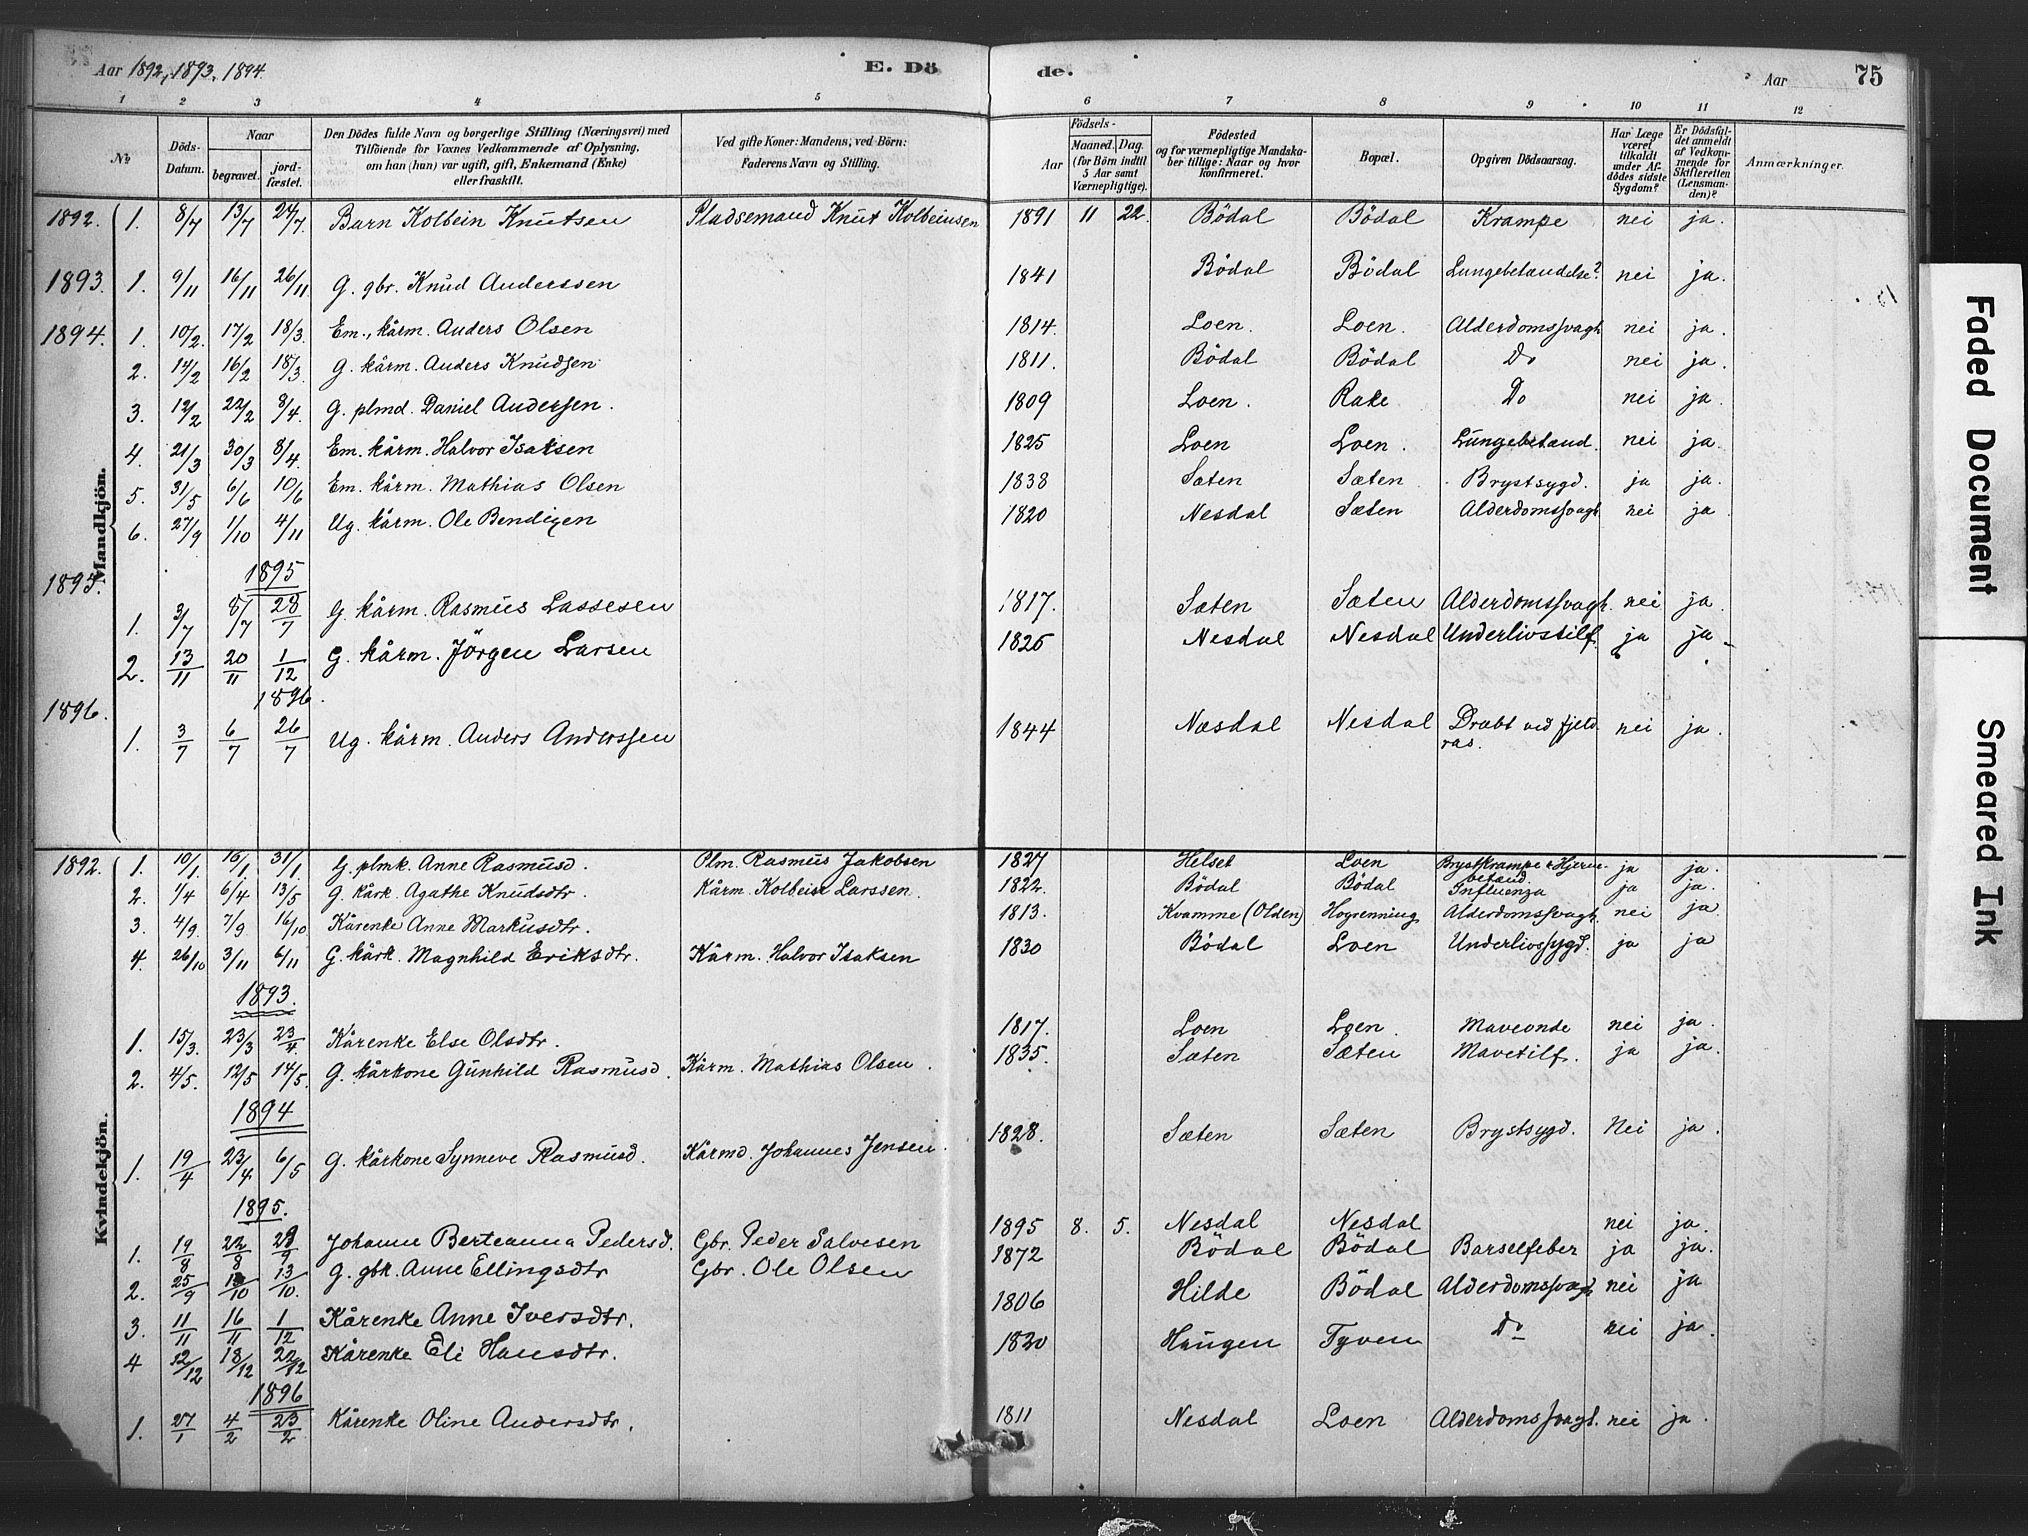 Aar 1892, 1893, 1894. E. Dö de. Aar 75
1 2 3 4 5 6 7 8 9 10 11 12
No Döds-Datum. Naar begravet. jord-fæstet. Den Dödes fulde Navn og borgerlige Stilling (Næringsvei) med Tilföiende for Voxnes Vedkommende af Oplysning, om han (hun) var ugift, gift, Enkemand (Enke) eller fraskilt. Ved gifte Koner: Mandens, ved Börn: Faderens Navn og Stilling. Födsels- Aar Maaned. Dag. (for Börn indtil 5 Aar samt Værnepligtige). Födested og for værnepligtige Mandska-ber tillige: Naar og hvor konfirmeret. Bopæl. Opgiven Dödsaarsag. Har Læge været tilkaldt under Af-dödes sidste Sygdom? Er Dödsfal-det anmeldt af Vedkom-mende for Skifteretten (Lensman-den)? Anmærkninger.
Mandkjön.
1892. 1. 8/7 13/7 24/7. Barn Kolbein Knutsen Pladsemand Knut Kolbeinsen 1891 11 22. Bödal Bödal Krampe nei ja.
1893. 1. 9/11 16/11 26/11 G. gbr. Knud Anderssen 1841 Bödal Bödal Lungebetændelse? nei ja.
1894. 1. 10/2. 17/2 18/3 Em., kårm. Anders Olsen 1814. Loen. Loen. Alderdomssvagh nei ja.
2. 14/2 16/2 18/3. G. kårm. Anders Knudsen 1811. Bödal Bödal Do nei ja.
3. 12/2 22/2 8/4. G. plmd. Daniel Andersen. 1809 Loen. Rake Do nei ja.
4. 21/3 30/3 8/4. Em. kårm. Halvor Isaksen 1825 Loen Loen. Lungebetænd. nei ja.
5. 31/5 6/6 10/6 Em. kårm. Mathias Olsen 1838 Sæten Sæten. Brystsygd. ja ja.
6. 27/9 1/10 4/11 Ug. kårm. Ole Bendixen 1820 Nesdal Sæten Alderdomssvagh nei ja
1895. 1895
1. 3/7 8/7 28/7 G. kårm. Rasmus Lassesen 1817. Sæten Sæten Alderdomssvagh. nei ja.
2. 13/11 20/11 1/12 G. kårm. Jörgen Larsen 1826 Nesdal Nesdal Underlivstilf. ja ja
1896. 1896.
1. 3/7 6/7 26/7 Ug. kårm. Anders Anderssen 1844 Næsdal Nesdal Dræbt ved fjeld ras. nei ja.
Kvindekjön.
1892. 1. 10/1. 16/1. 31/1. G. plmk. Anne Rasmusd. Plm. Rasmus Jakobsen 1827 Helset Loen Brystkrampe & Hjerne-betænd. ja ja.
2. 1/4 6/4 13/5 G. kårk. Agathe Knudsdtr. Kårm. Kolbein Larssen. 1822. Bödal Bödal Influenza ja ja.
3. 4/9. 7/9. 16/10 Kårenke Anne Markusdtr. 1813. Kvamme (Olden) Hogrenning Alderdomssvagh. nei ja
4. 26/10 3/11 6/11 G. kårk. Magnhild Eriksdtr. Kårm. Halvor Isaksen 1830 Bödal Loen Underlivssygd. ja ja
1893.
1. 15/3. 23/3 23/4. Kårenke Else Olsdtr. 1817. Loen Loen. Maveonde nei ja.
2. 4/5. 12/5 14/5. G. kårkone Gunhild Rasmusd. Kårm. Mathias Olsen. 1835. Sæten Sæten Mavetilf. ja ja.
1894
1. 19/4 23/4 6/5 G. kårkone Synneve Rasmusd. Kårmd. Johannes Jensen. 1828. Sæten Sæten Brystsygd. Nei ja.
1895.
1. 19/8 22/8 29/9 Johanne Berteanna Pedersd. Gbr. Peder Salvesen 1895 8. 5. Nesdal Nesdal nei ja.
2. 25/9 13/10 13/10. G. gbk. Anne Ellingsdtr Gbr. Ole Olsen 1872 Bödal Bödal Barselfeber ja ja.
3. 11/11 16/11 1/12 Kårenke Anne Iversdtr. 1806 Hilde Bödal Alderdomssvagh nei ja
4 12/12 18/12 22/12 Kårenke Eli Hansdtr. 1820 Haugen Tyven Do nei ja.
1896
1. 27/1 4/2 23/2 Kårenke Oline Andersdtr. 1811 Nesdal Loen Alderdomssvagh. nei ja.
Faded Document
Smeared Ink